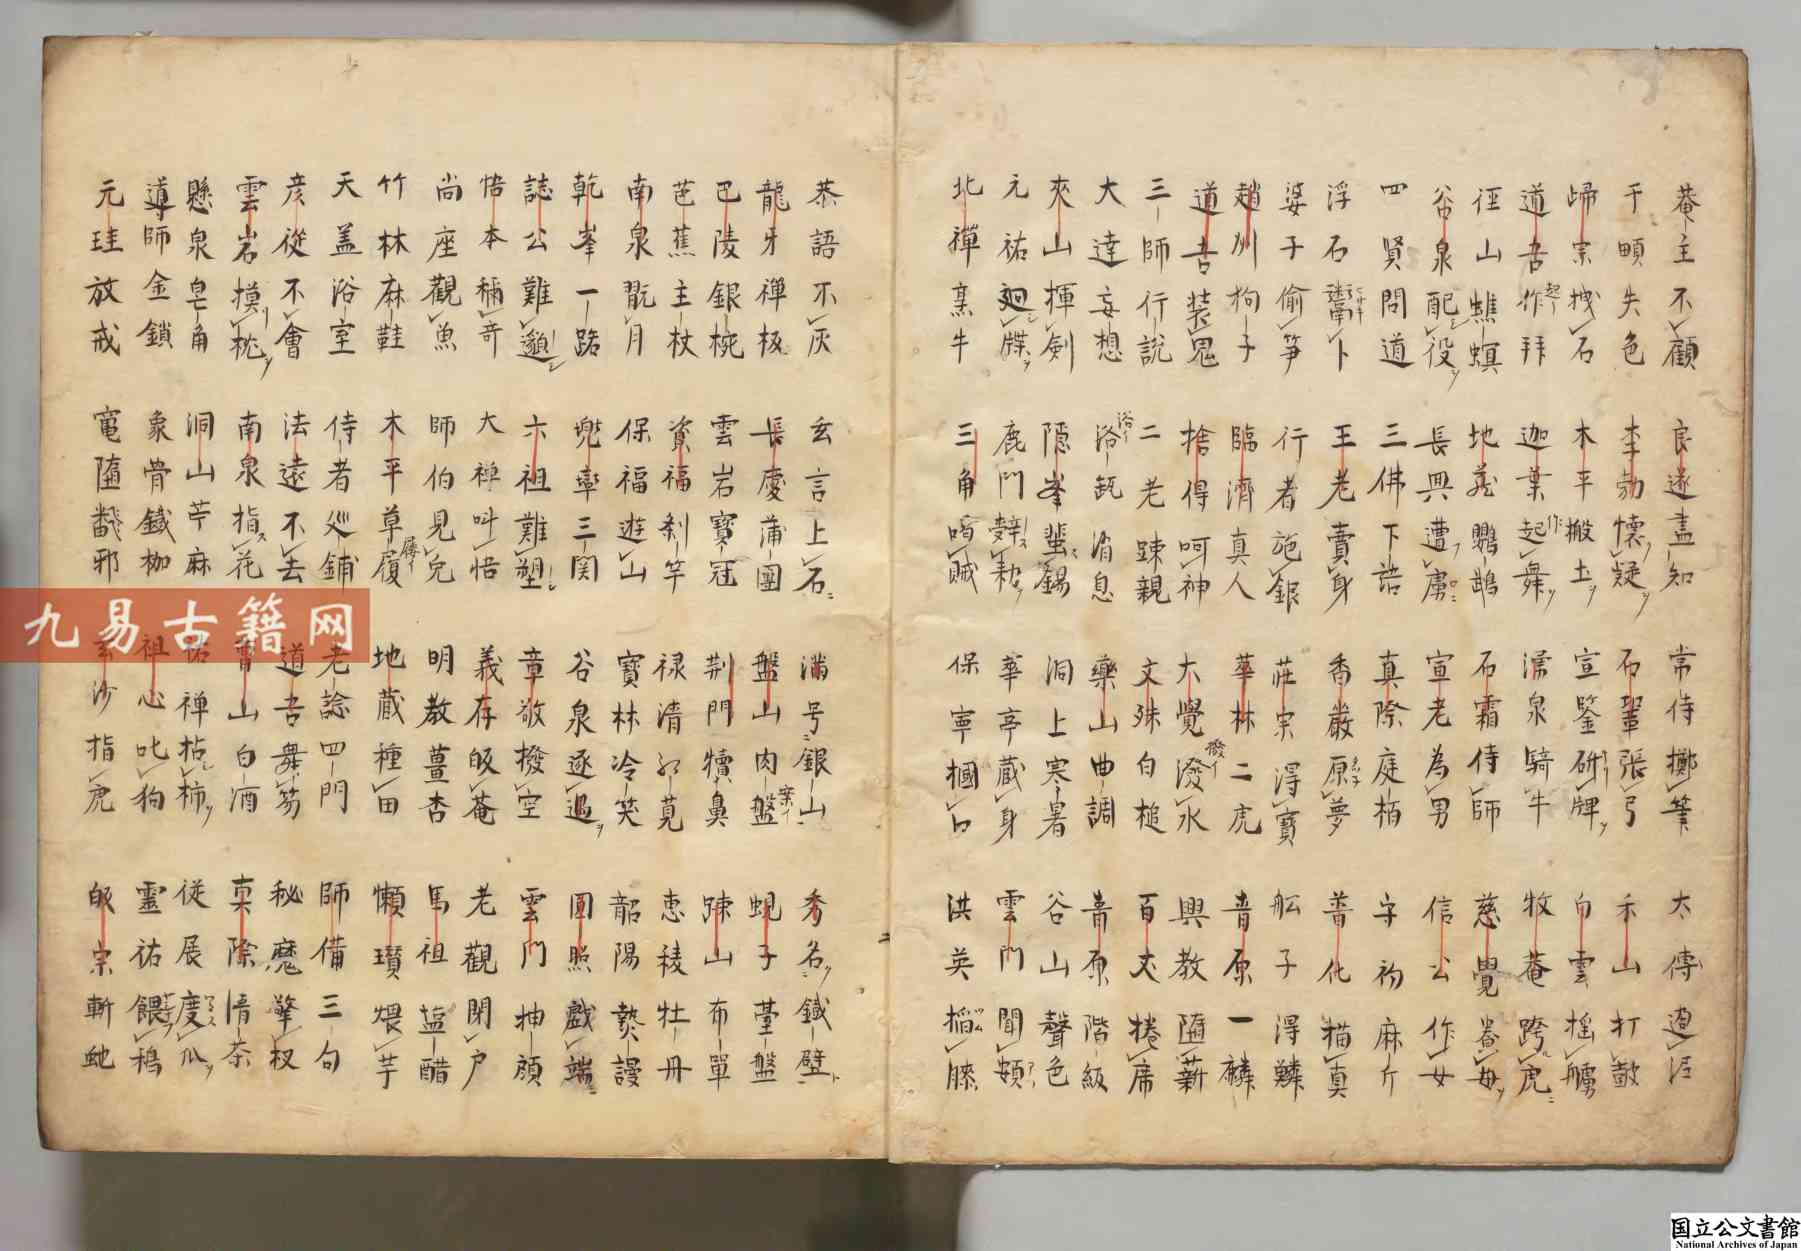 菴主不顧 良遂盡知 常侍擲筆 太傅
于頔失色 李勃懷疑 石鞏張弓 禾山打皷
歸宗拽石 木平搬土 宣鑒斫牌 白雲搖艣
道吾作拜 迦葉起舞 濡泉騎牛 牧菴跨虎
徑山蟭螟 地藏鸚鵡 石霜侍師 慈覺養母
谷泉配役 長興遭虜 宣老為男 信公作女
四賢問道 三佛下語 真際庭栢 守初麻斤
浮石鬻卜 王老賣身 香嚴原夢 普化描真
婆子偷笋 行者施銀 莊宗得寶 舩子得鱗
趙州狗子 臨濟真人 華林二虎 青原一麟
道吾装鬼 捨得呵神 大覺潑水 興教墮薪
三師行說 二老踈親 文殊白槌 百丈捲席
大達妄想 浴瓶消息 藥山曲調 青原階級
夾山揮劍 隱峯飛錫 洞上寒暑 谷山聲色
元祐廻牒 鹿門辭耒 華亭藏身 雲門聞頻
北禪烹牛 三角喝賊 保寧摑口 洪英搯膝
恭語不灰 玄言上石 滿号銀山 秀名鐵壁
龍牙禪板 長慶蒲團 盤山肉盤 蜆子臺盤
巴陵銀椀 雲岩寶冠 荆門犢鼻 踈山布單
芭蕉主杖 資福刹竿 禄清 莧 恵稜牡丹
南泉翫月 保福遊山 寶林冷笑 韶陽 謾
乾峯一路 兠率三関 谷泉逐 圓照戲端
誌公難邈 六祖難塑 章敬撥空 雲門抽顧
悟本稱奇 大禅呌悟 義存皈菴 老觀閉户
尚座觀魚 師伯見兔 明教薑杏 馬祖塩醋
竹林麻鞋 木平草履 地蔵種田 懶瓚煨芋
天盖浴室 侍者巡鋪 老諗四門 師備三句
彦從不會 法遠不去 道吾舞笏 秘魔擎杈
雲岩摸枕 南泉指花 曹山白酒 真際 茶
懸泉皂角 洞山苧麻 祐禅拈柿 從展度瓜
導師金鎖 象骨鐵枷 祖心叱狗 靈祐餵鴉
元珪放戒 竃墮翻邪 玄沙指虎 皈宗斬虵
九易古籍网
国立公文書館
National Archives of Japan